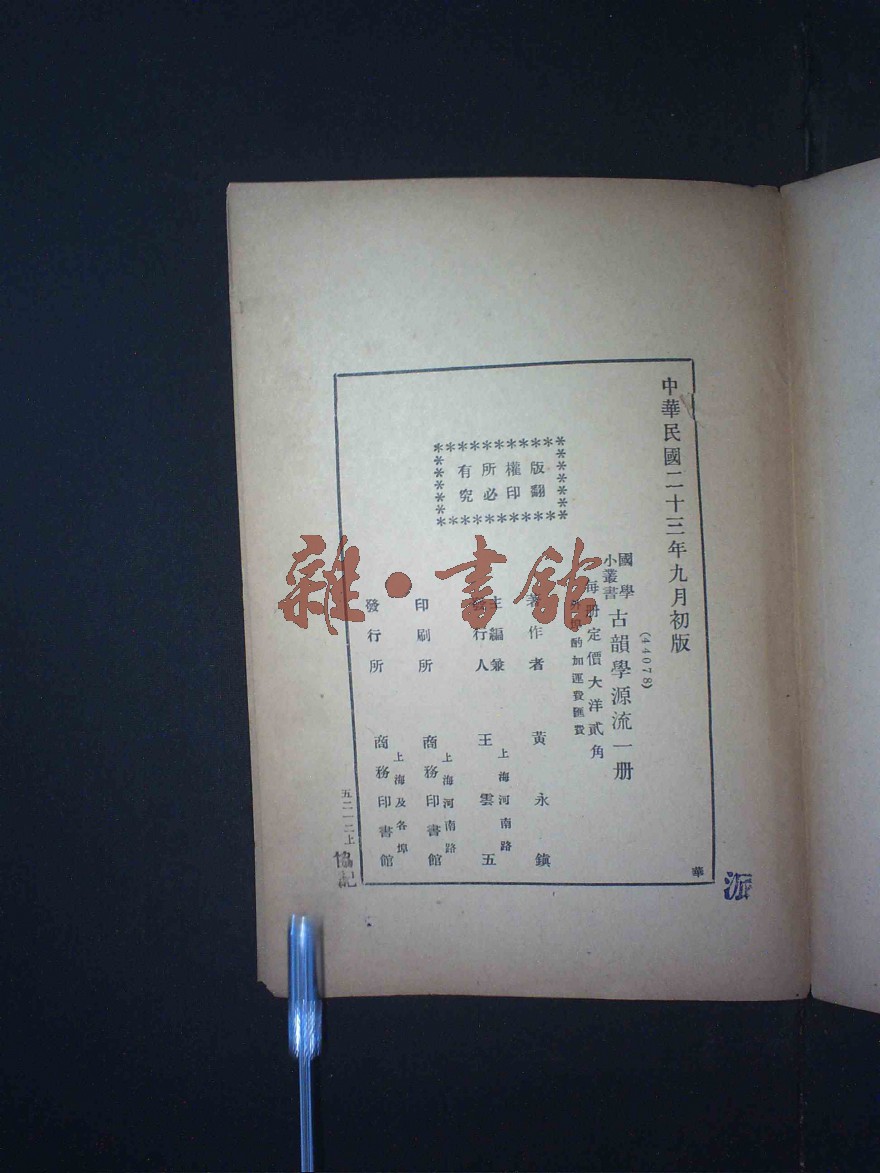 中華民國二十三年九月初版
(44078)
國學
小叢書
古韻學源流一册
每册定價大洋貳角
酌加運費匯費
版權所有
翻印必究
著作者
黃永鎮
主編兼
發行人
上海河南路
王雲五
印刷所
上海河南路
商務印書館
發行所
上海及各埠
商務印書館
華
五二一二上
協記
雜·書館